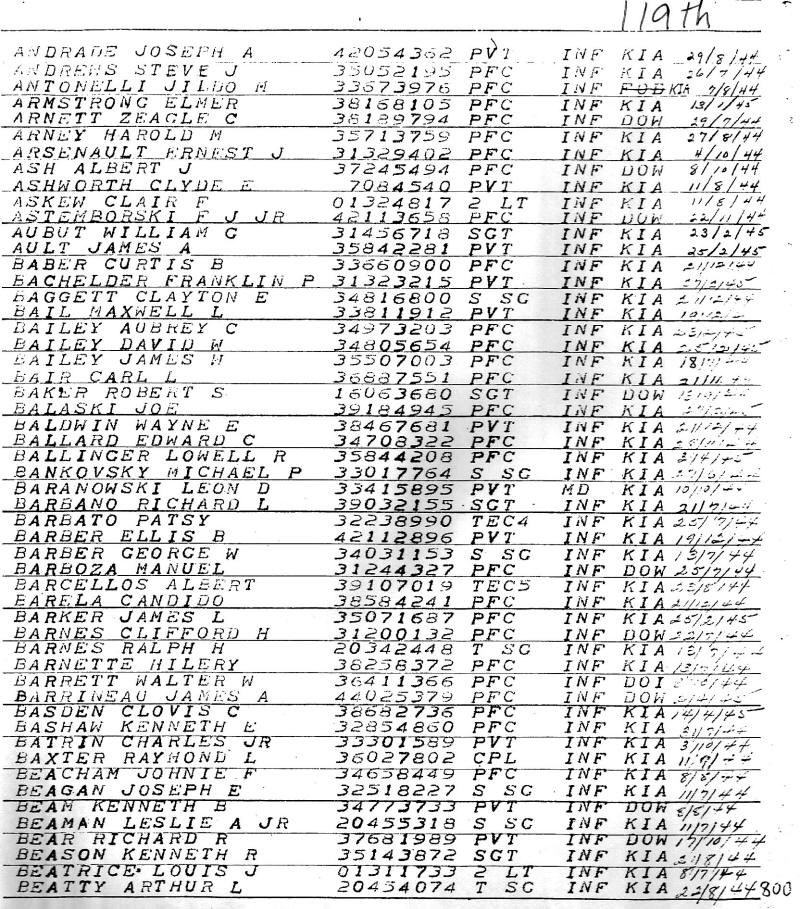 119th
ANDRADE JOSEPH A 42054362 PVT INF KIA 29/8/44
ANDREWS STEVE J 35052195 PFC INF KIA 26/7/44
ANTONELLI JILDO M 33673976 PFC INF FOD KIA 7/8/44
ARMSTRONG ELMER 38168105 PFC INF KIA
ARNETT ZEAGLE C 38189794 PFC INF DOW 29/7/44
ARNEY HAROLD M 35713759 PFC INF KIA 27/8/44
ARSENAULT ERNEST J 31329402 PFC INF KIA 4/10/44
ASH ALBERT J 37245494 PFC INF DOW 8/10/44
ASHWORTH CLYDE E 7084540 PVT INF KIA 11/8/44
ASKEW CLAIR F 01324817 2 LT INF KIA 11/8/44
ASTEMBORSKI F J JR 42113658 PFC INF DOW 22/11/44
AUBUT WILLIAM G 31456718 SGT INF KIA 23/2/45
AULT JAMES A 35842281 PVT INF KIA 25/2/45
BABER CURTIS B 33660900 PFC INF KIA 21/12/44
BACHELDER FRANKLIN P 31323215 PVT INF KIA 27/2/45
BAGGETT CLAYTON E 34816800 S SG INF KIA
BAIL MAXWELL L 33811912 PVT INF KIA
BAILEY AUBREY C 34973203 PFC INF KIA
BAILEY DAVID W 34805654 PFC INF KIA
BAILEY JAMES H 35507003 PFC INF KIA
BAIR CARL L 36887551 PFC INF KIA 21/11/44
BAKER ROBERT S 16063680 SGT INF DOW
BALASKI JOE 39184945 PFC INF KIA
BALDWIN WAYNE E 38467681 PVT INF KIA 21/12/44
BALLARD EDWARD C 34708322 PFC INF KIA
BALLINGER LOWELL R 35844208 PFC INF KIA 3/4/45
BANKOVSKY MICHAEL P 33017764 S SG INF KIA
BARANOWSKI LEON D 33415895 PVT MD KIA 10/10/44
BARBANO RICHARD L 39032155 SGT INF KIA 21/7/44
BARBATO PATSY 32238990 TEC4 INF KIA 25/7/44
BARBER ELLIS B 42112896 PVT INF KIA 19/12/44
BARBER GEORGE W 34031153 S SG INF KIA 13/7/44
BARBOZA MANUEL 31244327 PFC INF DOW 25/7/44
BARCELLOS ALBERT 39107019 TEC5 INF KIA
BARELA CANDIDO 38584241 PFC INF KIA 21/12/44
BARKER JAMES L 35071687 PFC INF KIA 25/2/45
BARNES CLIFFORD H 31200132 PFC INF DOW 22/7/44
BARNES RALPH H 20342448 T SG INF KIA
BARNETTE HILERY 38258372 PFC INF KIA 13/7/44
BARRETT WALTER W 36411366 PFC INF DOI
BARRINEAU JAMES A 44025379 PFC INF DOW
BASDEN CLOVIS C 38682736 PFC INF KIA 14/4/45
BASHAW KENNETH E 32854860 PFC INF KIA
BATRIN CHARLES JR 33301589 PVT INF KIA 3/10/44
BAXTER RAYMOND L 36027802 CPL INF KIA 11/9/44
BEACHAM JOHNIE F 34658449 PFC INF KIA 8/8/44
BEAGAN JOSEPH E 32518227 S SG INF KIA 11/7/44
BEAM KENNETH B 34773733 PVT INF DOW 8/8/44
BEAMAN LESLIE A JR 20455318 S SG INF KIA 11/7/44
BEAR RICHARD R 37681989 PVT INF DOW 17/10/44
BEASON KENNETH R 35143872 SGT INF KIA
BEATRICE LOUIS J 01311733 2 LT INF KIA 8/7/44
BEATTY ARTHUR L 20454074 T SG INF KIA 22/8/44 800